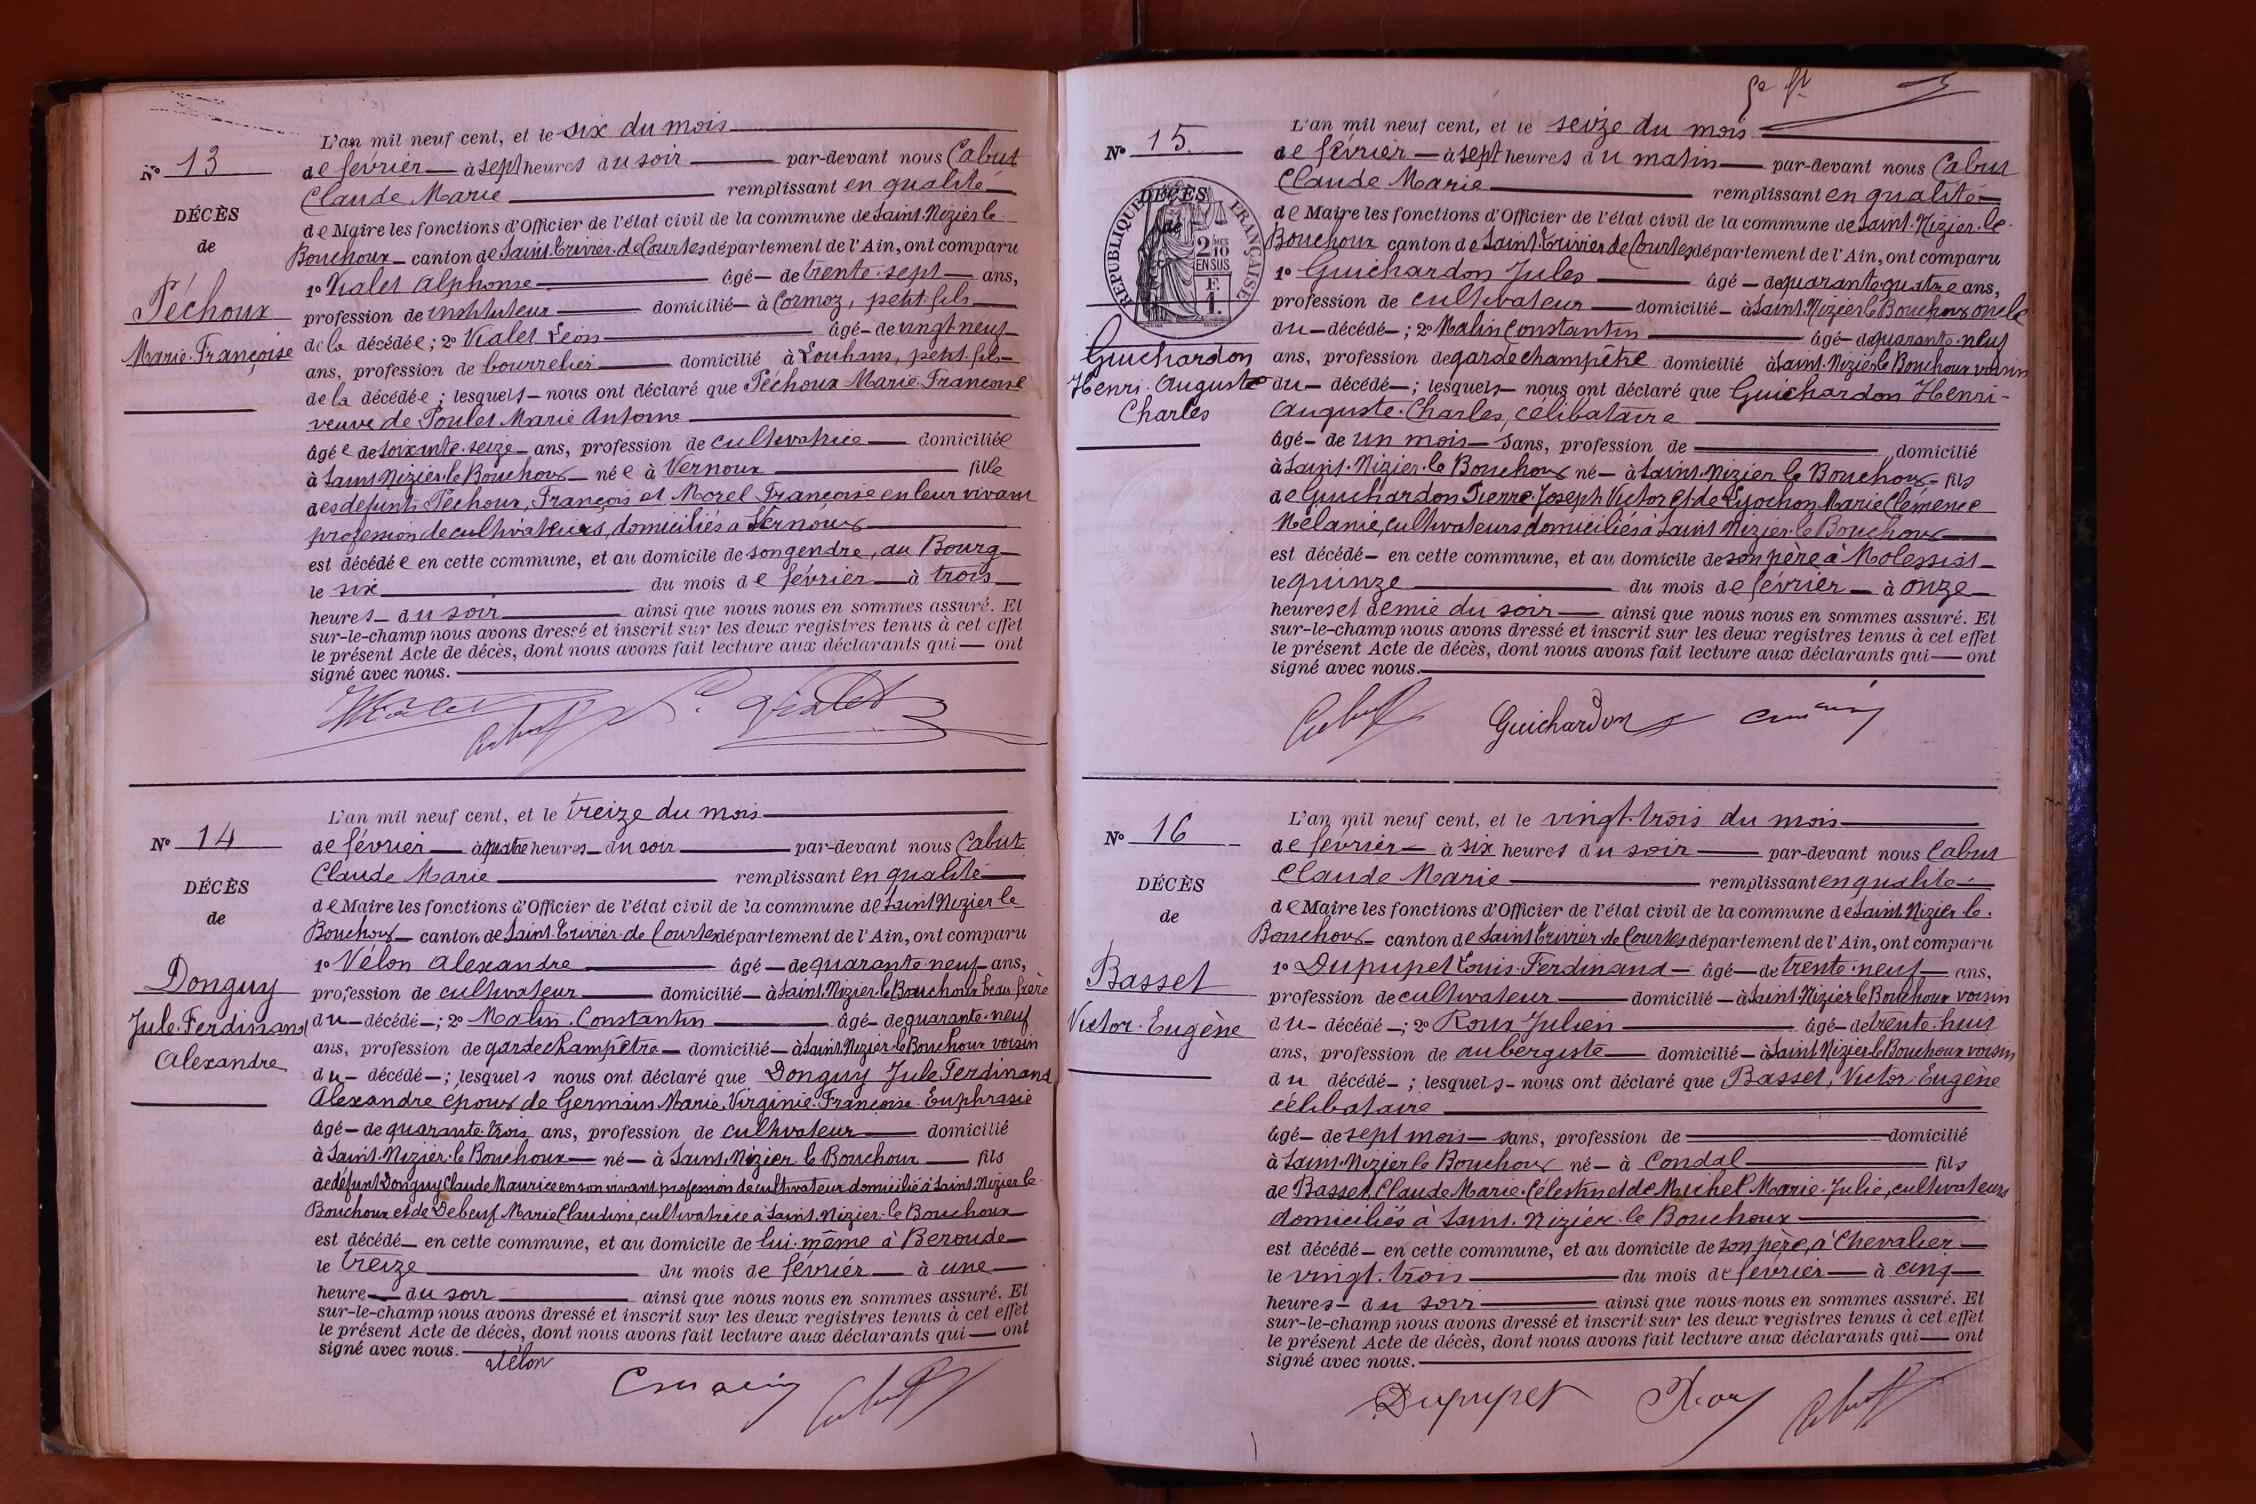 L'an mil neuf cent, et le six du mois
N° 13
de février à sept heures du soir par-devant nous Cabut
Claude Marie remplissant en qualité
DÉCÈS
de Maire les fonctions d'Officier de l'état civil de la commune de Saint Nizier le
de
Bouchoux canton de Saint Trivier de Courtes département de l'Ain, ont comparu
1° Vialet Alphonse âgé de trente-sept ans,
Péchoux
profession de instituteur domicilié à Cormoz, petit fils
de la décédée ; 2° Vialet Léon âgé de vingt neuf
Marie-Françoise
ans, profession de bourrelier domicilié à Louhans, petit-fils
de la décédée ; lesquels nous ont déclaré que Péchoux Marie Françoise
veuve de Poulet Marie Antoine
âgée de soixante-seize ans, profession de cultivatrice domiciliée
à Saint Nizier-le Bouchoux née à Vernoux fille
des défunts Péchoux, François et Morel Françoise en leur vivant
profession de cultivateurs, domiciliés à Vernoux
est décédée en cette commune, et au domicile de son gendre, au Bourg
le six du mois de février à trois
heures du soir ainsi que nous nous en sommes assuré. Et
sur-le-champ nous avons dressé et inscrit sur les deux registres tenus à cet effet
le présent Acte de décès, dont nous avons fait lecture aux déclarants qui ont
signé avec nous.
Vialet Cabut Vialet
L'an mil neuf cent, et le treize du mois
N° 14
de février à quatre heures du soir par-devant nous Cabut
Claude Marie remplissant en qualité
DÉCÈS
de Maire les fonctions d'Officier de l'état civil de la commune de Saint Nizier le
de
Bouchoux canton de Saint-Trivier-de Courtes département de l'Ain, ont comparu
1° Vélon Alexandre âgé de quarante neuf ans,
Donguy
profession de cultivateur domicilié à Saint-Nizier-le Bouchoux beau frère
Jule-Ferdinand
du décédé ; 2° Malin Constantin âgé de quarante-neuf
ans, profession de garde champêtre domicilié à Saint Nizier-le Bouchoux voisin
Alexandre
du décédé ; lesquels nous ont déclaré que Donguy Jule Ferdinand
Alexandre époux de Germain Marie, Virginie-Françoise-Euphrasie
âgé de quarante-trois ans, profession de cultivateur domicilié
à Saint-Nizier-le Bouchoux né à Saint-Nizier le Bouchoux fils
de défunt Donguy Claude Maurice en son vivant profession de cultivateur domicilié à Saint-Nizier le
Bouchoux et de Debeuf Marie Claudine, cultivatrice à Saint-Nizier-le Bouchoux
est décédé en cette commune, et au domicile de lui-même à Beroude
le treize du mois de février à une
heure du soir ainsi que nous nous en sommes assuré. Et
sur-le-champ nous avons dressé et inscrit sur les deux registres tenus à cet effet
le présent Acte de décès, dont nous avons fait lecture aux déclarants qui ont
signé avec nous.
Vélon
Cabut
L'an mil neuf cent, et le seize du mois
N° 15.
de février à sept heures du matin par-devant nous Cabut
Claude Marie remplissant en qualité
DÉCÈS
de
RÉPUBLIQUE FRANÇAISE
2 DÎMES 10 EN SUS
F. 1.
de Maire les fonctions d'Officier de l'état civil de la commune de Saint-Nizier-le
Bouchoux canton de Saint-Trivier de Courtes département de l'Ain, ont comparu
1° Guichardon Jules âgé de quarante quatre ans,
profession de cultivateur domicilié à Saint Nizier le Bouchoux oncle
du décédé ; 2° Malin Constantin âgé de quarante-neuf
Guichardon
ans, profession de garde champêtre domicilié à Saint-Nizier le Bouchoux voisin
Henri-Auguste
du décédé ; lesquels nous ont déclaré que Guichardon Henri-
Charles
Auguste-Charles, célibataire
âgé de un mois sans, profession de domicilié
à Saint-Nizier-le Bouchoux né à Saint-Nizier le Bouchoux fils
de Guichardon Pierre-Joseph Victor et de Lyochon Marie Clémence
Mélanie, cultivateurs domiciliés à Saint Nizier le Bouchoux
est décédé en cette commune, et au domicile de son père à Molessiat
le quinze du mois de février à onze
heures et demie du soir ainsi que nous nous en sommes assuré. Et
sur-le-champ nous avons dressé et inscrit sur les deux registres tenus à cet effet
le présent Acte de décès, dont nous avons fait lecture aux déclarants qui ont
signé avec nous.
Cabut Guichardon
L'an mil neuf cent, et le vingt-trois du mois
N° 16
de février à six heures du soir par-devant nous Cabut
Claude Marie remplissant en qualité
DÉCÈS
de Maire les fonctions d'Officier de l'état civil de la commune de Saint-Nizier-le
de
Bouchoux canton de Saint Trivier de Courtes département de l'Ain, ont comparu
1° Dupupet Louis-Ferdinand âgé de trente-neuf ans,
Basset
profession de cultivateur domicilié à Saint-Nizier le Bouchoux voisin
Victor-Eugène
du décédé ; 2° Roux Julien âgé de trente-huit
ans, profession de aubergiste domicilié à Saint Nizier le Bouchoux voisin
du décédé ; lesquels nous ont déclaré que Basset, Victor-Eugène
célibataire
âgé de sept mois sans, profession de domicilié
à Saint-Nizier le Bouchoux né à Condal fils
de Basset, Claude Marie-Célestin et de Michel Marie-Julie, cultivateurs
domiciliés à Saint-Nizier-le Bouchoux
est décédé en cette commune, et au domicile de son père, à Chevalier
le vingt-trois du mois de février à cinq
heures du soir ainsi que nous nous en sommes assuré. Et
sur-le-champ nous avons dressé et inscrit sur les deux registres tenus à cet effet
le présent Acte de décès, dont nous avons fait lecture aux déclarants qui ont
signé avec nous.
Dupupet Roux Cabut